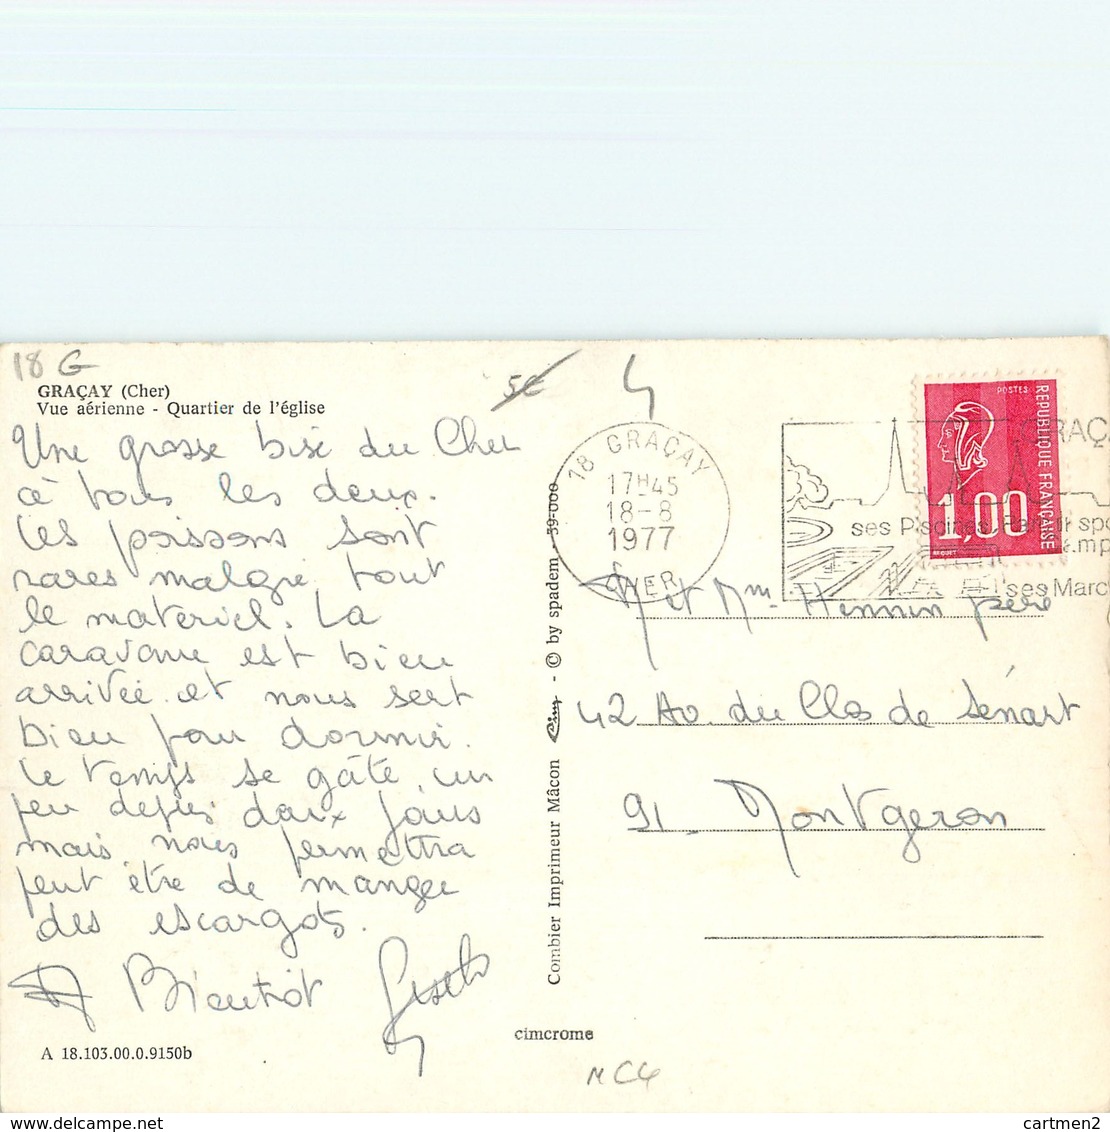 18 G
GRAÇAY (Cher)
Vue aérienne - Quartier de l'église
5€
Une grosse bise du Cher
à tous les deux.
Les poissons sont
rares malgré tout
le matériel. La
caravane est bien
arrivée et nous sert
bien pour dormir.
Le temps se gâte un
peu depuis deux jours
mais nous permettra
peut être de manger
des escargots.
A Bientôt
A 18.103.00.0.9150b
Combier Imprimeur Mâcon Cim - © by spadem - 39-000
cimcrome
MC4
18 GRAÇAY
17H45
18-8
1977
CHER
GRAÇA
ses Piscines
ses Marc
POSTES
REPUBLIQUE FRANÇAISE
1,00
BEQUET
M et Mme Hennin père
42 Av. du Clos de Sénart
91. Montgeron
cartmen2